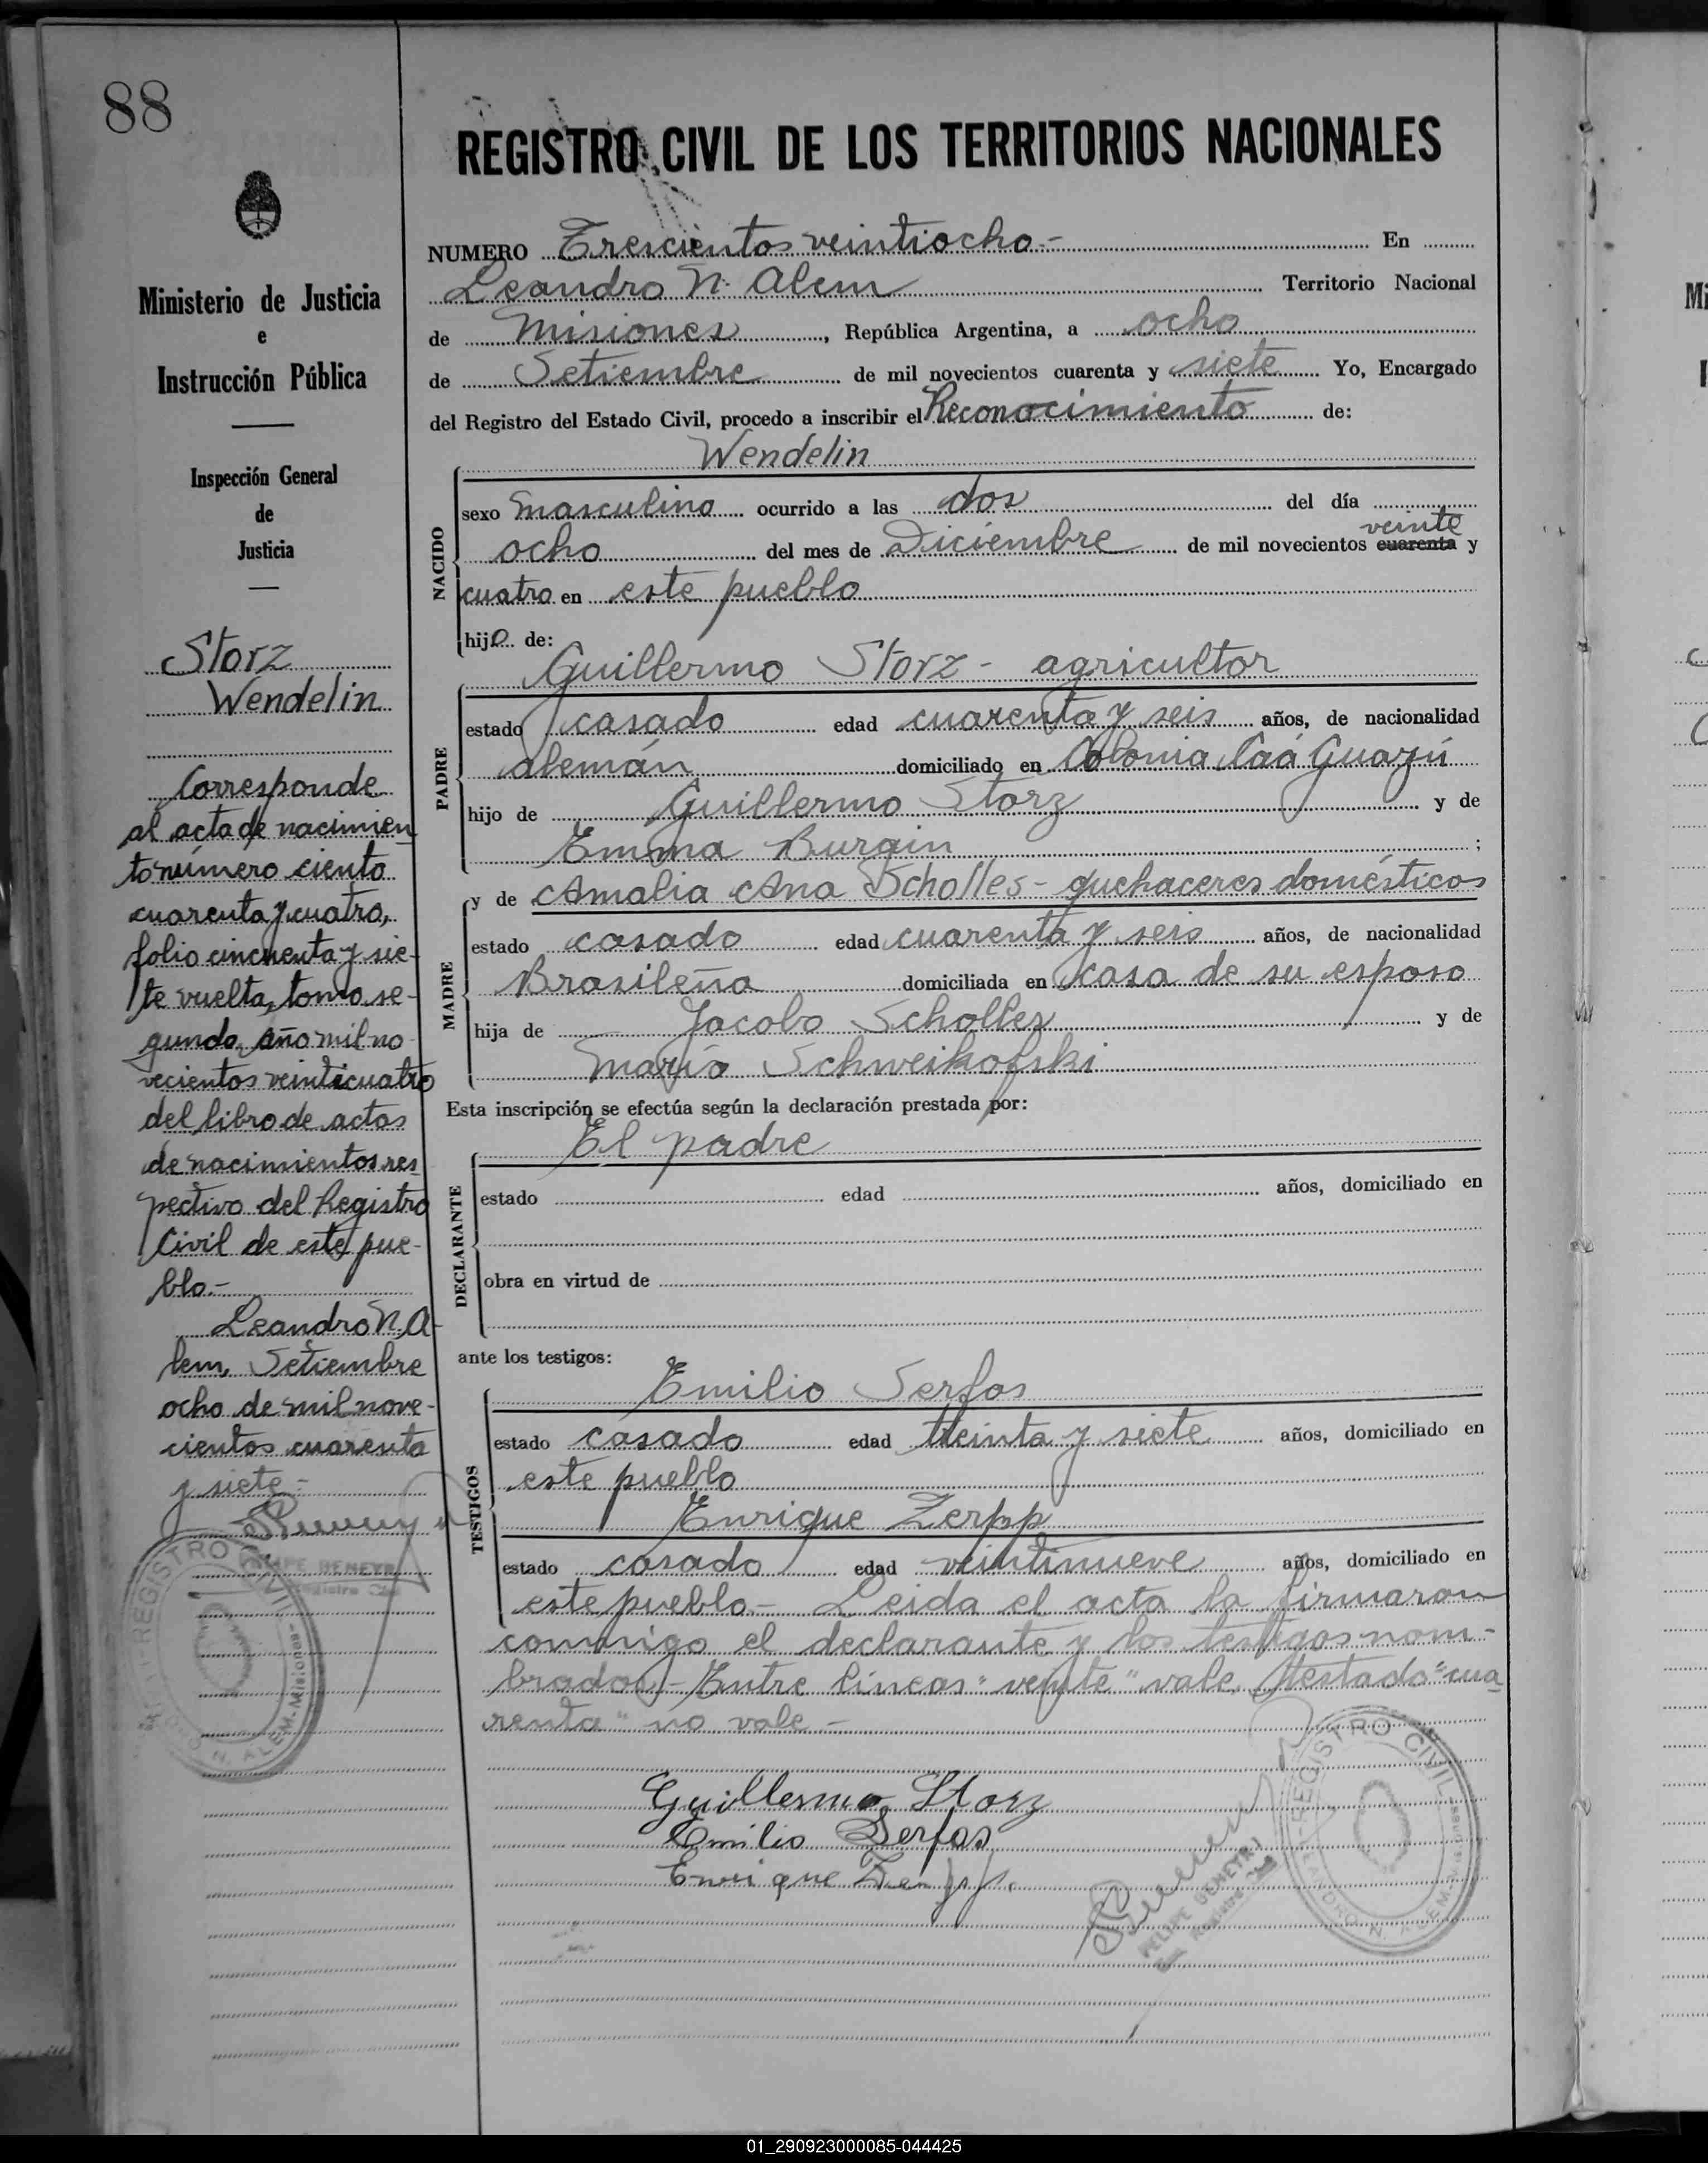 88
REGISTRO CIVIL DE LOS TERRITORIOS NACIONALES
Ministerio de Justicia
e
Instrucción Pública
Inspección General
de
Justicia
Storz
Wendelin
Corresponde
al acta de nacimien
to número ciento
cuarenta y cuatro,
folio cincuenta y sie-
te vuelta, tomo se-
gundo, año mil no
vecientos veinticuatro
del libro de actas
de nacimientos res
pectivo del Registro
Civil de este pue-
blo.-
Leandro N. A-
lem, Setiembre
ocho de mil nove-
cientos cuarenta
y siete.-
NUMERO Trescientos veintiocho.- En
Leandro N. Alem Territorio Nacional
de Misiones, República Argentina, a ocho
de Setiembre de mil novecientos cuarenta y siete Yo, Encargado
del Registro del Estado Civil, procedo a inscribir el Reconocimiento de:
Wendelin
NACIDO
sexo masculino ocurrido a las dos del día
veinte
ocho del mes de Diciembre de mil novecientos cuarenta y
cuatro en este pueblo
hijo de:
Guillermo Storz - agricultor
PADRE
estado casado edad cuarenta y seis años, de nacionalidad
alemán domiciliado en Colonia Caá Guazú
hijo de Guillermo Storz y de
Emma Burgin ;
y de Amalia Ana Scholles - quehaceres domésticos
MADRE
estado casado edad cuarenta y seis años, de nacionalidad
Brasileña domiciliada en casa de su esposo
hija de Jacobo Scholles y de
María Schweikofski
Esta inscripción se efectúa según la declaración prestada por:
El padre
DECLARANTE
estado edad años, domiciliado en
obra en virtud de
ante los testigos:
Emilio Serfas
TESTIGOS
estado casado edad treinta y siete años, domiciliado en
este pueblo
Enrique Zerpp
estado casado edad veintinueve años, domiciliado en
este pueblo.- Leida el acta la firmaron
conmigo el declarante y los testigos nom-
brados.- Entre líneas "veinte" vale. Testado "cua
renta" no vale.-
Guillermo Storz
Emilio Serfas
Enrique Zerpp.
REGISTRO CIVIL
LEANDRO N. ALEM-Misiones
FELIPE BENETRI
Enc. Registro Civil
REGISTRO CIVIL
N. ALEM-Misiones-
01_290923000085-044425